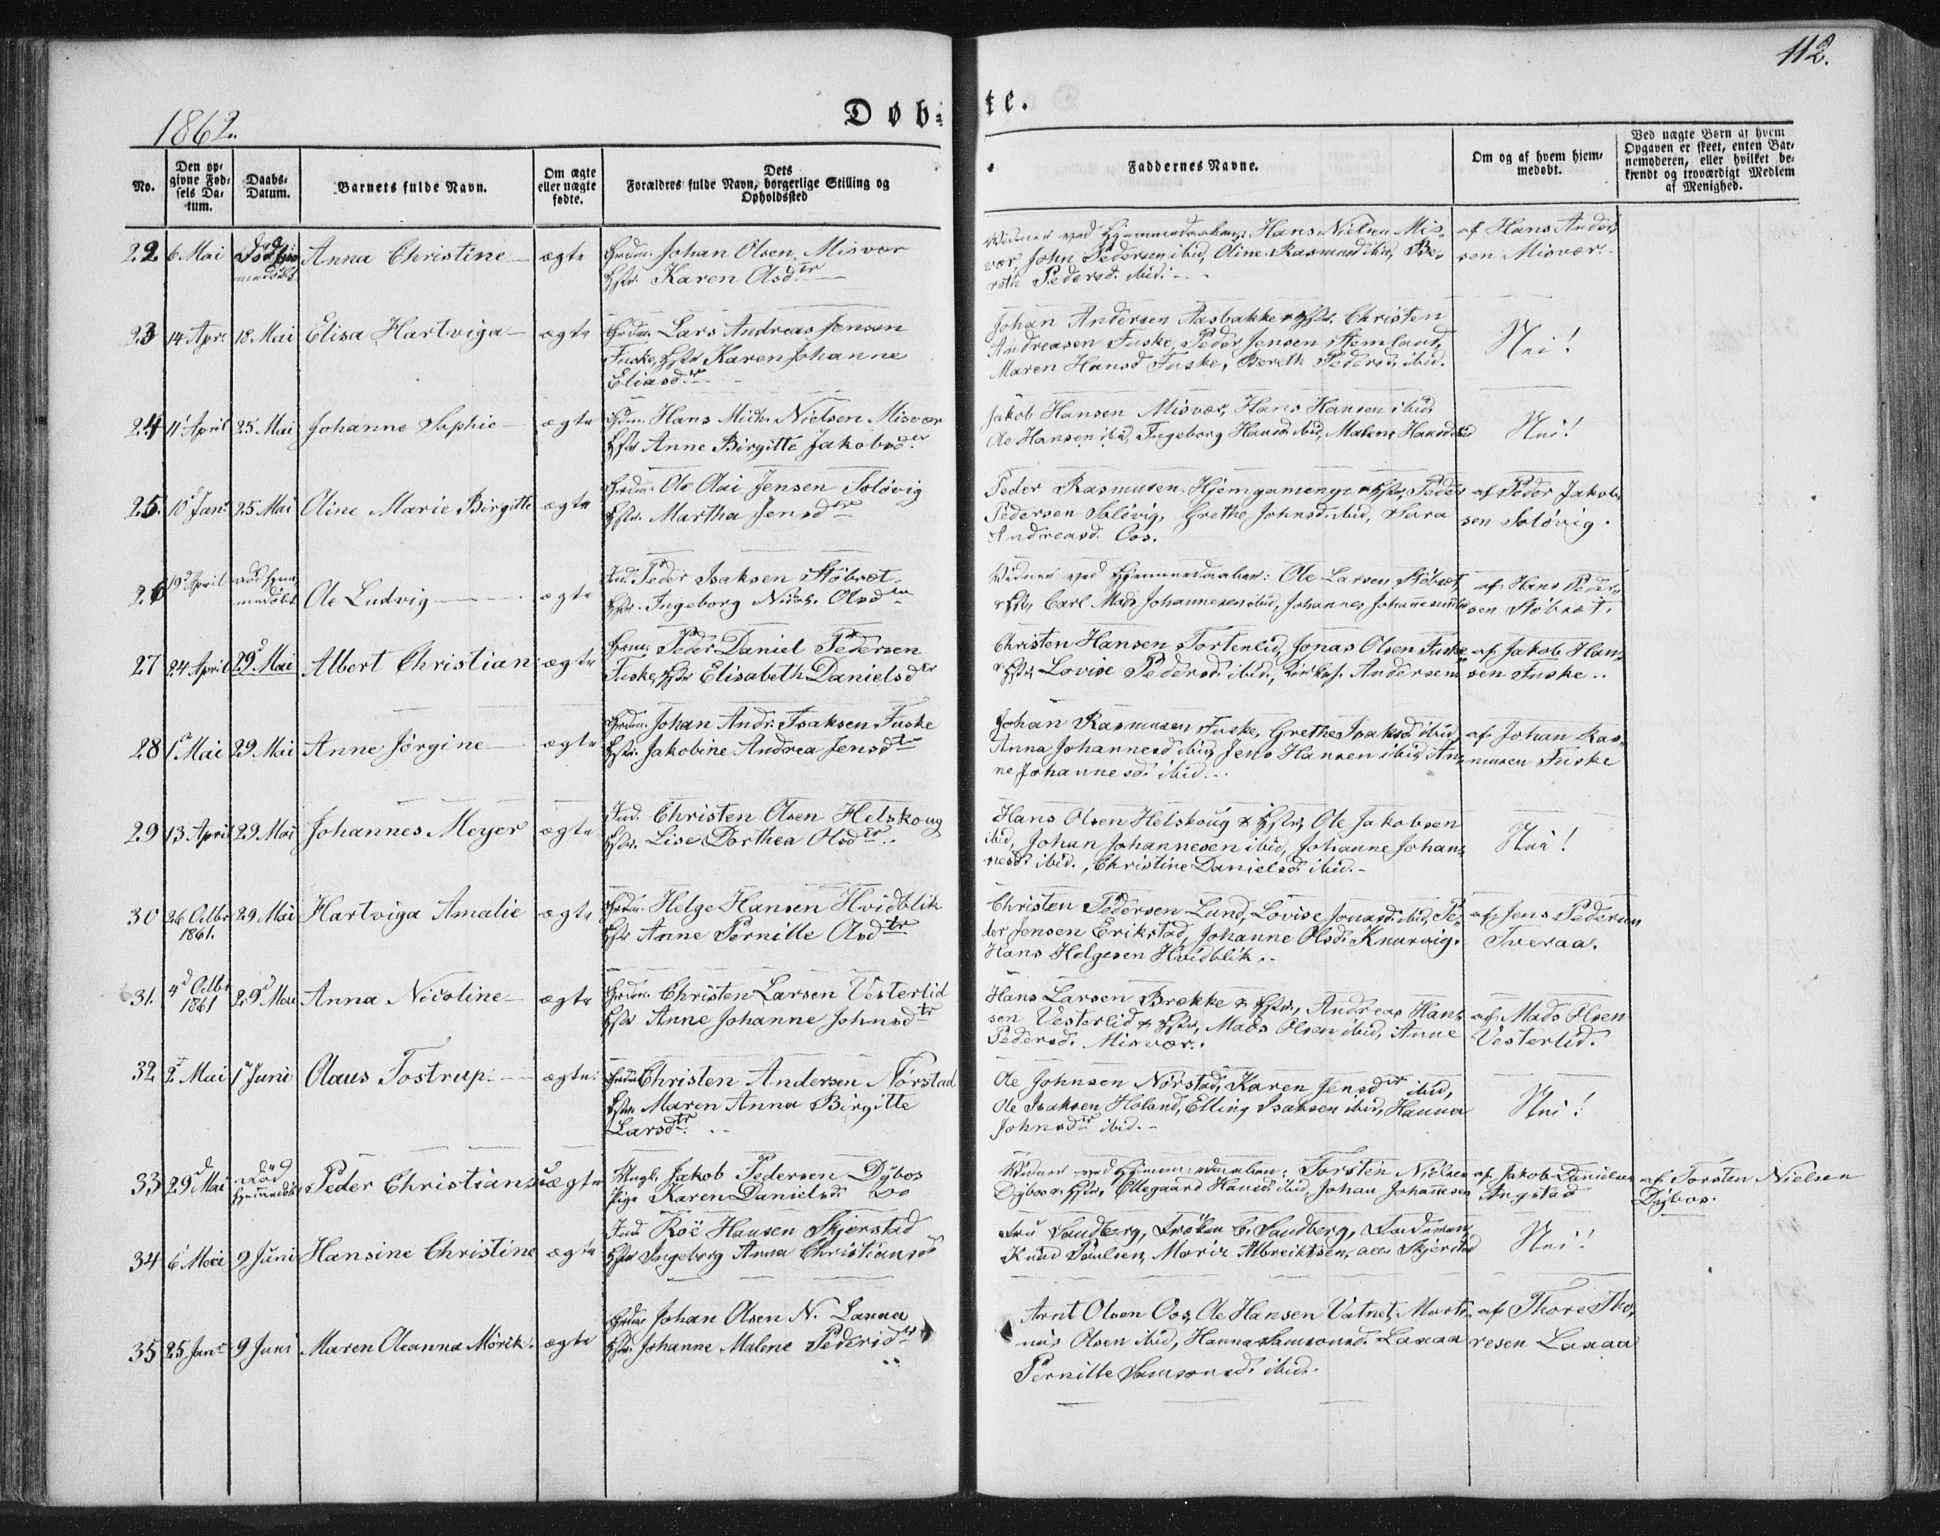 112.
1862.
Døb-
te.
No.
Den op-
givne Fød-
sels Da-
tum.
Daabs-
Datum.
Barnets fulde Navn.
Om ægte
eller uægte
fødte.
Dets
Forældres fulde Navn, borgerlige Stilling og
Opholdssted
Faddernes Navne.
Om og af hvem hjem-
medøbt.
Ved uægte Børn af hvem
Opgaven er skeet, enten Bar-
nemoderen, eller hvilket be-
kjendt og troværdigt Medlem
af Menighed.
22 6 Mai Anna Christine ægte Johan Olsen, Misvær
Karen Olsdtr
Vidner ved Hjemmedaaben: Hans Nielsen Mis-
vær, John Pedersen ibid, Oline Rasmusd ibid, Be-
reth Pedersd. ibid.
af Hans Ander-
sen Misvær.
23 14 Apr. 18 Mai Elisa Hartviga ægte Lars Andreas Jensen
Fuske, Karen Johanne
Eliasdtr
Johan Andersen Aasbakke Christen
Andreasen Fuske, Peder Jensen
Maren Hansd Fuske, Bereth Pedersd. ibid.
Nei!
24 11 April 25 Mai Johanne Sophie ægte Hans Nielsen Misvær
Anne Birgitte Jakobsdtr
Jakob Hansen Misvær, Hans Hansen ibid
Ole Hansen ibid, Ingeborg Hansd ibid, Malene Hansd ibid
Nei!
25. 10 Jan. 25 Mai Oline Marie Birgitte ægte Ole Olai Jensen Soløvig
Martha Jensdtr
Peder Rasmusen Peder
Pedersen Soløvig, Grethe Johnsd. ibid, Sara
Andreasd. Oos.
af Peder Jakob-
sen Soløvig.
26 19 April Ole Ludvig ægte Ind. Peder Isaksen Støbræt
Ingeborg Olsdtr
Vidner ved Hjemmedaaben: Ole Larsen Støbræt
Carl Mads Johannesen ibid, Johannes
af Hans Peder-
sen Støbræt.
27 24 April 29 Mai Albert Christian ægte Peder Daniel Pedersen
Fuske, Elisabeth Danielsdtr
Christen Hansen Tortenlid, Jonas Olsen Fuske
Lovise Pedersd. ibid, Andersen
af Jakob Han-
sen Fuske.
28 1 Mai 29 Mai Anne Jørgine ægte Johan Andr. Isaksen Fuske
Jakobine Andrea Jensdtr
Johan Rasmusen Fuske, Grethe Isaksd ibid
Anna Johannesd ibid, Jens Hansen ibid, An-
ne Johannesd. ibid.
af Johan Ras-
musen Fuske
29 13 April 29 Mai Johannes Meyer ægte Ind. Christen Olsen Helskoug
Lise Dorthea Olsdtr
Hans Olsen Helskoug Ole Jakobsen
ibid, Johan Johannesen ibid, Johanne Johan-
nesd. ibid., Christine Danielsd. ibid.
Nei!
30 26 Octbr 1861. 29 Mai Hartviga Amalie ægte Helge Hansen Hvidblik
Anne Pernille Olsdtr
Christen Pedersen Lund, Lovise Jonasd. ibid, Pe-
der Jensen Erikstad, Johanne Olsd. Knurvig.
Hans Helgesen Hvidblik.
af Jens Pedersen
Tveraa.
31. 4 Octbr 1861 29 Mai Anna Nicoline ægte Christen Larsen Vesterlid
Anne Johanne Johnsdtr
Hans Larsen Brække Andreas Han-
sen Vesterlid Mads Olsen ibid, Anne
Pedersd. Misvær.
af Mads Olsen
Vesterlid.
32 2 Mai 1 Juni Olaus Tostrup ægte Christen Andersen Nørstad
Maren Anna Birgitte
Larsdtr
Ole Johnsen Nørstad, Karen Jensdtr ibid,
Ole Isaksen Holand, Elling Isaksen ibid, Hanna
Johnsdtr ibid.
Nei!
33 29 Mai Peder Christian uægte Ungk. Jakob Pedersen Dybos
Pige Karen Danielsd.
Vidner ved Hjemmedaaben: Torsten Nielsen
Dybos Ollegaard Hansd ibid, Johan Johannesen
af Jakob Danielsen
af Torsten Nielsen
Dybos.
34 6 Mai 9 Juni Hansine Christine ægte Ind. Roe Hansen Skjerstad
Ingeborg Anna Christiansd
Fru Sandberg, Frøken Sandberg,
Knud Poulsen, Maria Albreiktsen, alle Skjerstad
Nei!
35 25 Jan. 9 Juni Maren Oleanna Mørik ægte Johan Olsen N. Laxaa
Johanne Malene Pedersdtr
Arnt Olsen Oos, Ole Hansen Vatnet, Mort-
Olsen ibid, Hanna Samsonsd. Laxaa
Pernille Samsonsd. ibid.
af Thore Tho-
resen Laxaa